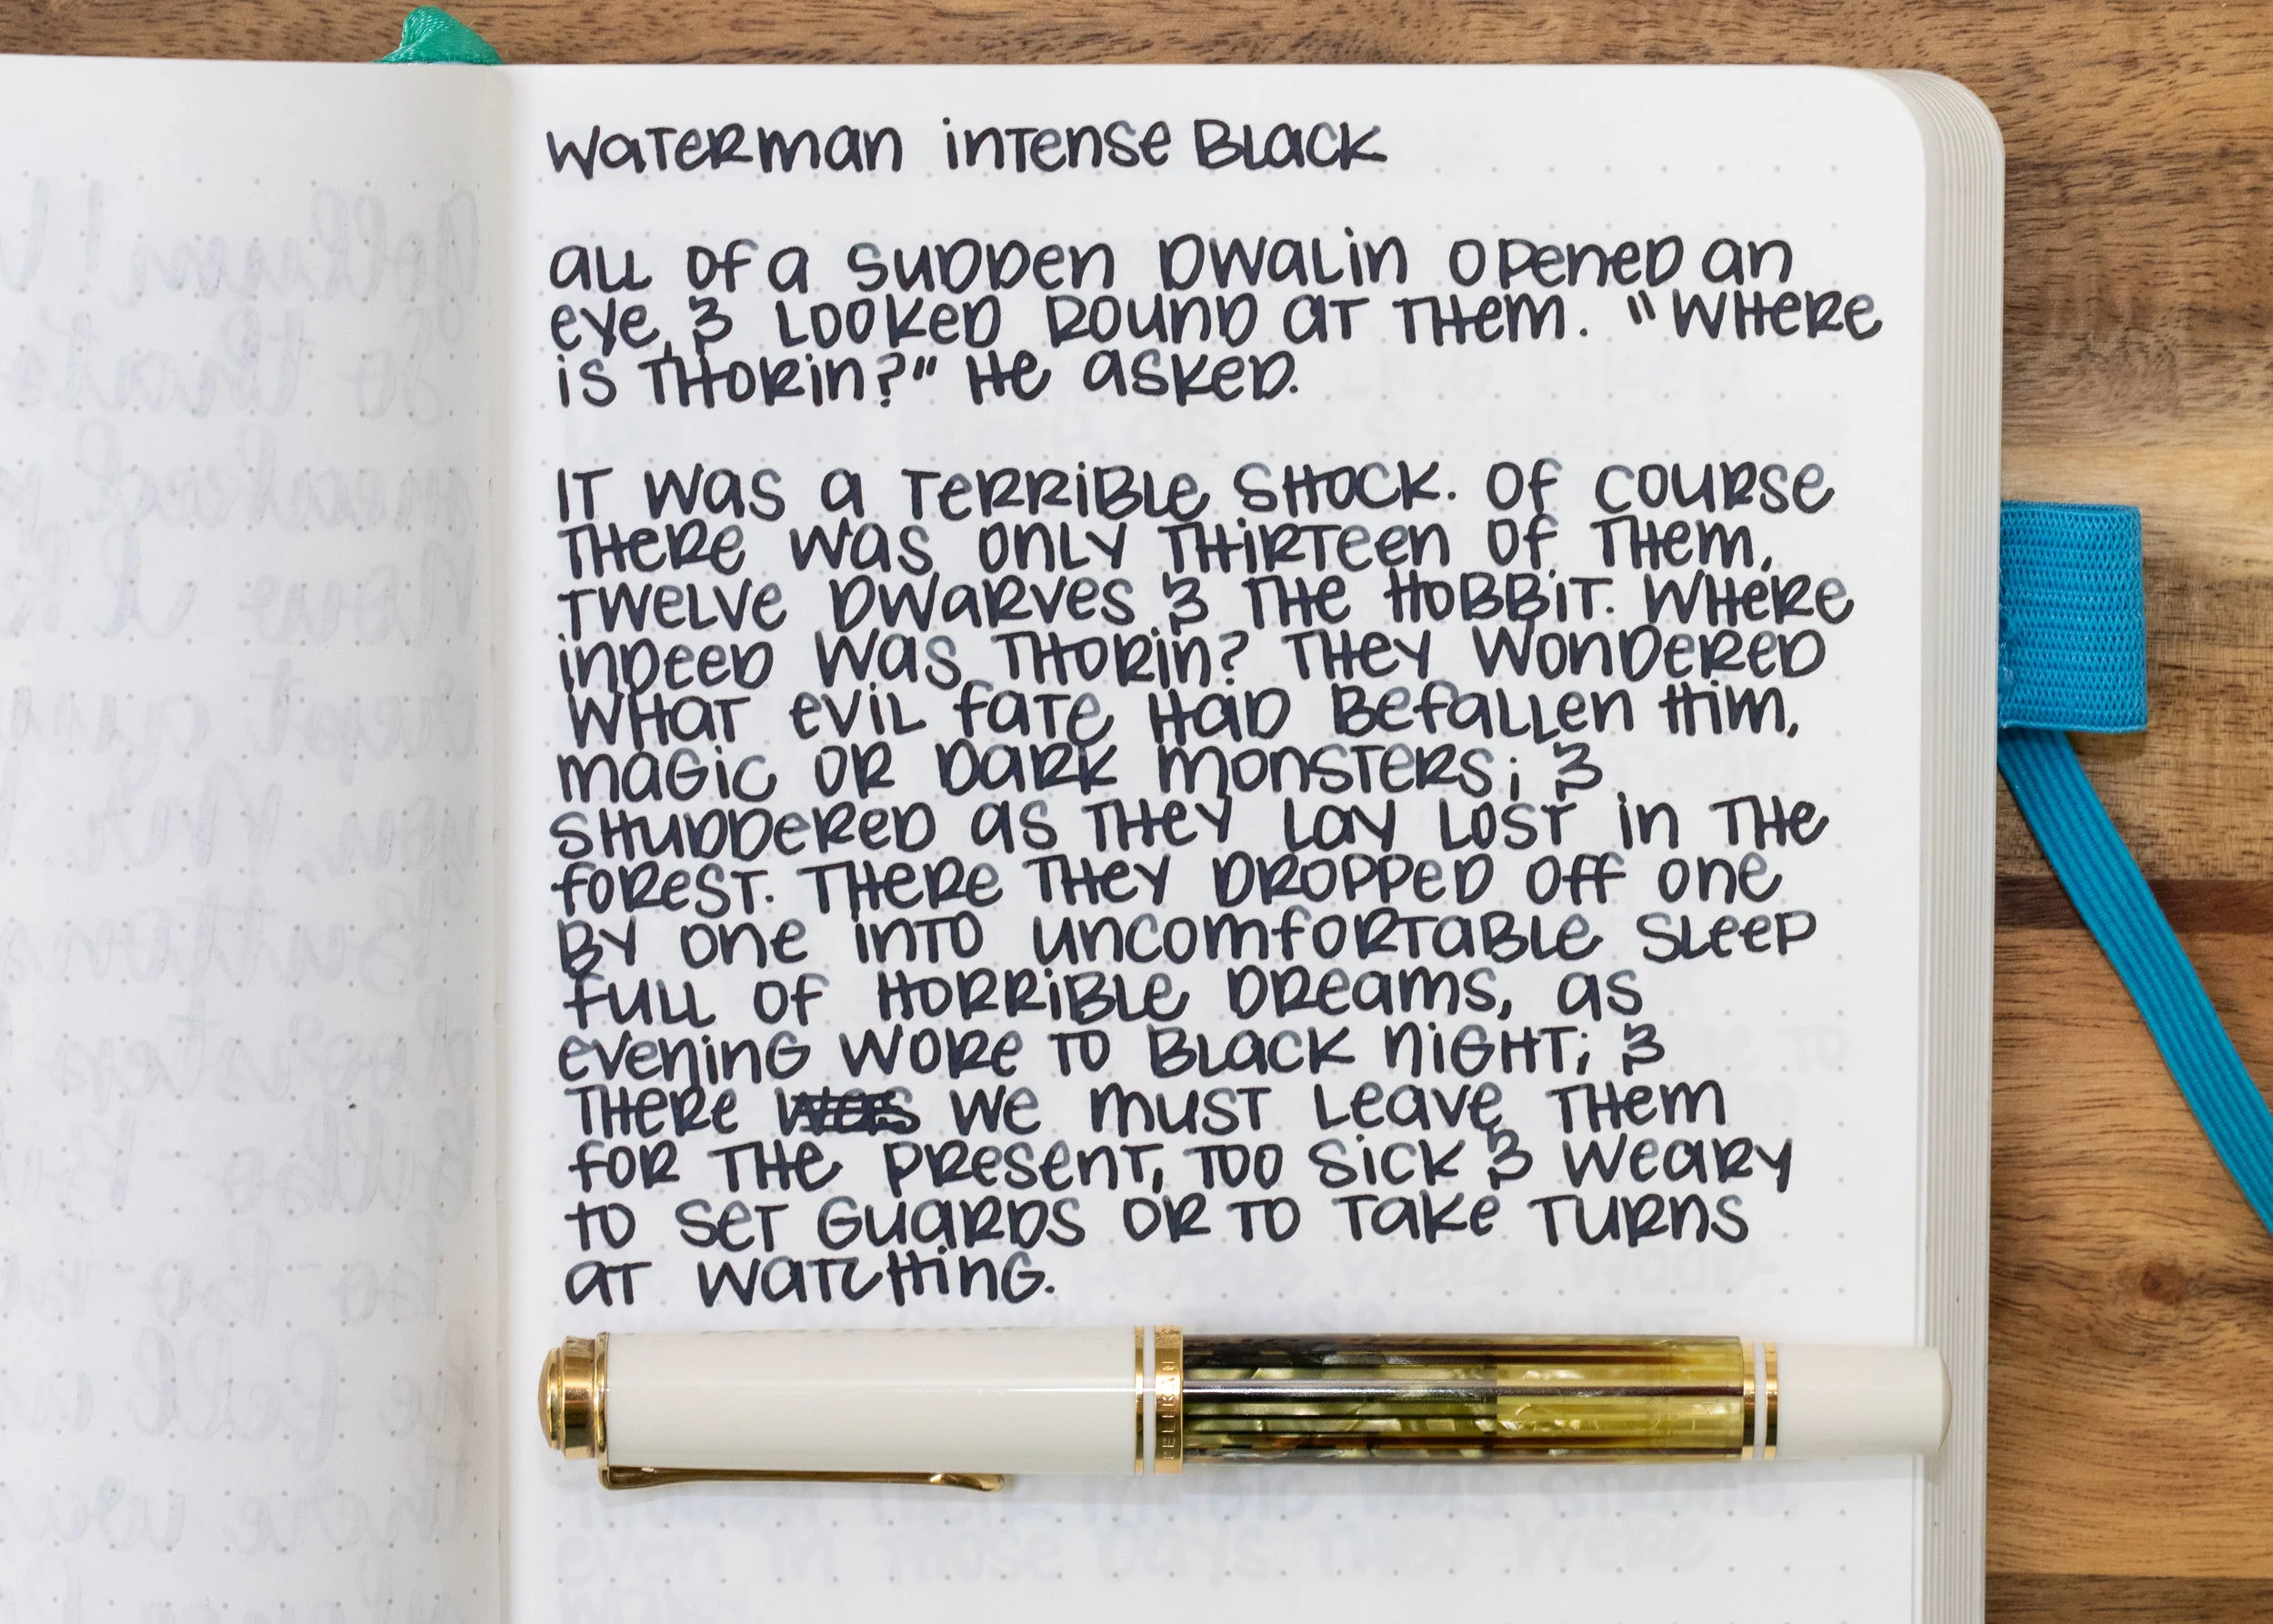 Waterman Intense Black
All of a sudden Dwalin opened an
eye, & looked round at them. "Where
is Thorin?" He asked.
It was a terrible shock. Of course
there was only thirteen of them,
twelve dwarves & the hobbit. Where
indeed was Thorin? They wondered
what evil fate had befallen him,
magic or dark monsters; &
shuddered as they lay lost in the
forest. There they dropped off one
by one into uncomfortable sleep
full of horrible dreams, as
evening wore to black night; &
there we must leave them
for the present, too sick & weary
to set guards or to take turns
at watching.
PELIKAN